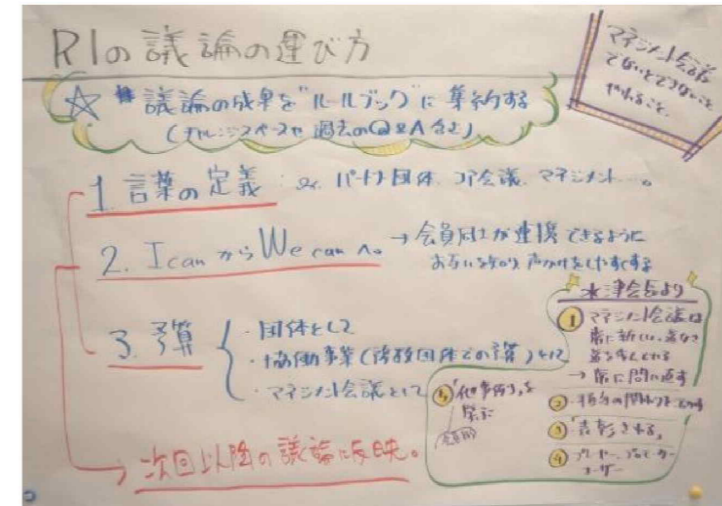 RIの議論の運び方
マネジメント会議
でないとできないこと
やれること。
☆ 議論の成果を"ルールブック"に集約する
(チャレンジスペースや過去のQ&A含む)
1. 言葉の定義 パートナー団体、コア会議、マネジメント…。
2. I can から We can へ。 → 会員同士が連携できるように
お互いを知り声かけをしやすくする
3. 予算
・団体として
・協働事業(複数団体での予算)として
・マネジメント会議として
→ 次回以降の議論に反映。
会長より
① マネジメント会議は
常に新しい、道なき
道を歩んでいる
→ 常に問い直す
②
③ 「表彰される」
④ プレーヤー、プロモーター
ユーザー
⑤ 「他事例」を